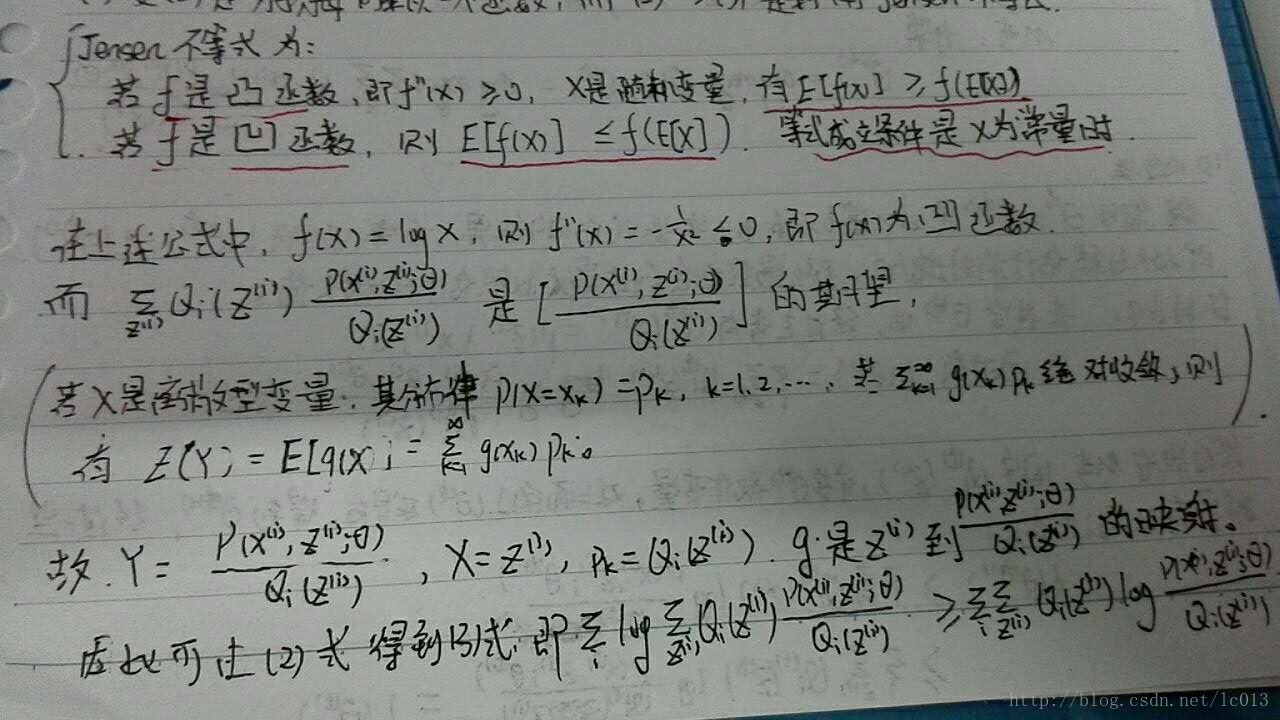 Jensen 不等式为:
若 f 是凸函数, 即 f''(x) ≥ 0, X是随机变量, 有 E[f(x)] ≥ f(E(X))
若 f 是凹函数, 则 E[f(X)] ≤ f(E[X]). 等式成立条件是 X 为常量时.
在上述公式中, f(x) = log x, 则 f''(x) = -1/x² ≤ 0, 即 f(x) 为凹函数.
而 Σ_{z^{(i)}} Q_i(z^{(i)}) P(x^{(i)}, z^{(i)}; θ) / Q_i(z^{(i)}) 是 [P(x^{(i)}, z^{(i)}; θ) / Q_i(z^{(i)})] 的期望,
(若 X 是离散型变量, 其分布律 P(X=x_k) = p_k, k=1,2,…, 若 Σ_{k=1}^{∞} g(x_k) p_k 绝对收敛, 则
有 E(Y) = E[g(X)] = Σ_{k=1}^{∞} g(x_k) p_k。).
故 Y = P(x^{(i)}, z^{(i)}; θ) / Q_i(z^{(i)}), X = z^{(i)}, p_k = Q_i(z^{(i)}). g 是 z^{(i)} 到 P(x^{(i)}, z^{(i)}; θ) / Q_i(z^{(i)}) 的映射。
因此可由 (2) 式得到 (3) 式, 即 Σ_i log Σ_{z^{(i)}} Q_i(z^{(i)}) P(x^{(i)}, z^{(i)}; θ) / Q_i(z^{(i)}) ≥ Σ_i Σ_{z^{(i)}} Q_i(z^{(i)}) log P(x^{(i)}, z^{(i)}; θ) / Q_i(z^{(i)})
http://blog.csdn.net/lc013